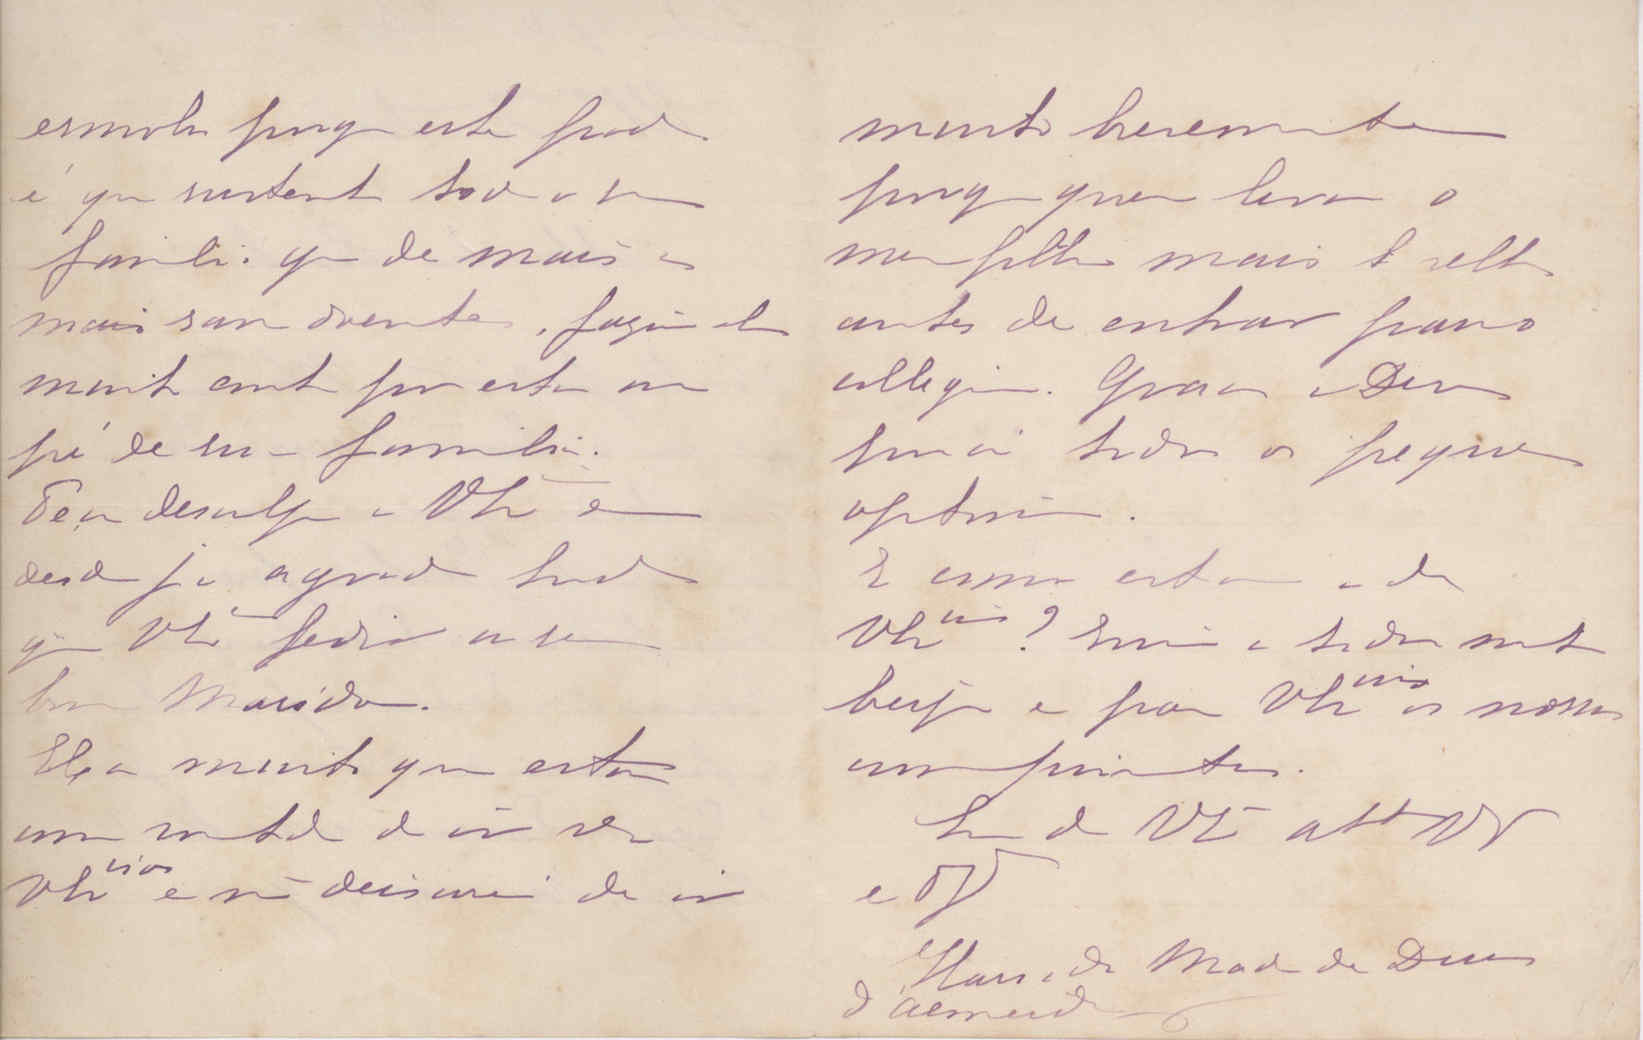 esmola porq esta pod
é que sustenta toda a sua
familia que de mais a
mais sam doentes, fazia
muita conta por estar ao
pé de sua familia.
Peço desculpa a VEx e
desde já agradeço tudo
que VEx pedir ao seu
bom Marido.
Ha muito que estou
com vontade de ir ver
VEx cias e não deixarei de ir
muito brevemente
porq quero levar o
meu filho mais velho
antes de entrar para o
collegio. Graças a Deus
por cá todos os pequenos
optimos.
E como estam os de
VEx cias? Envio a todos muitos
beijos e para VEx cias os nossos
comprimentos.
Sou de VEx att Vr
e
Maria da Madre de Deus
d'Almeida